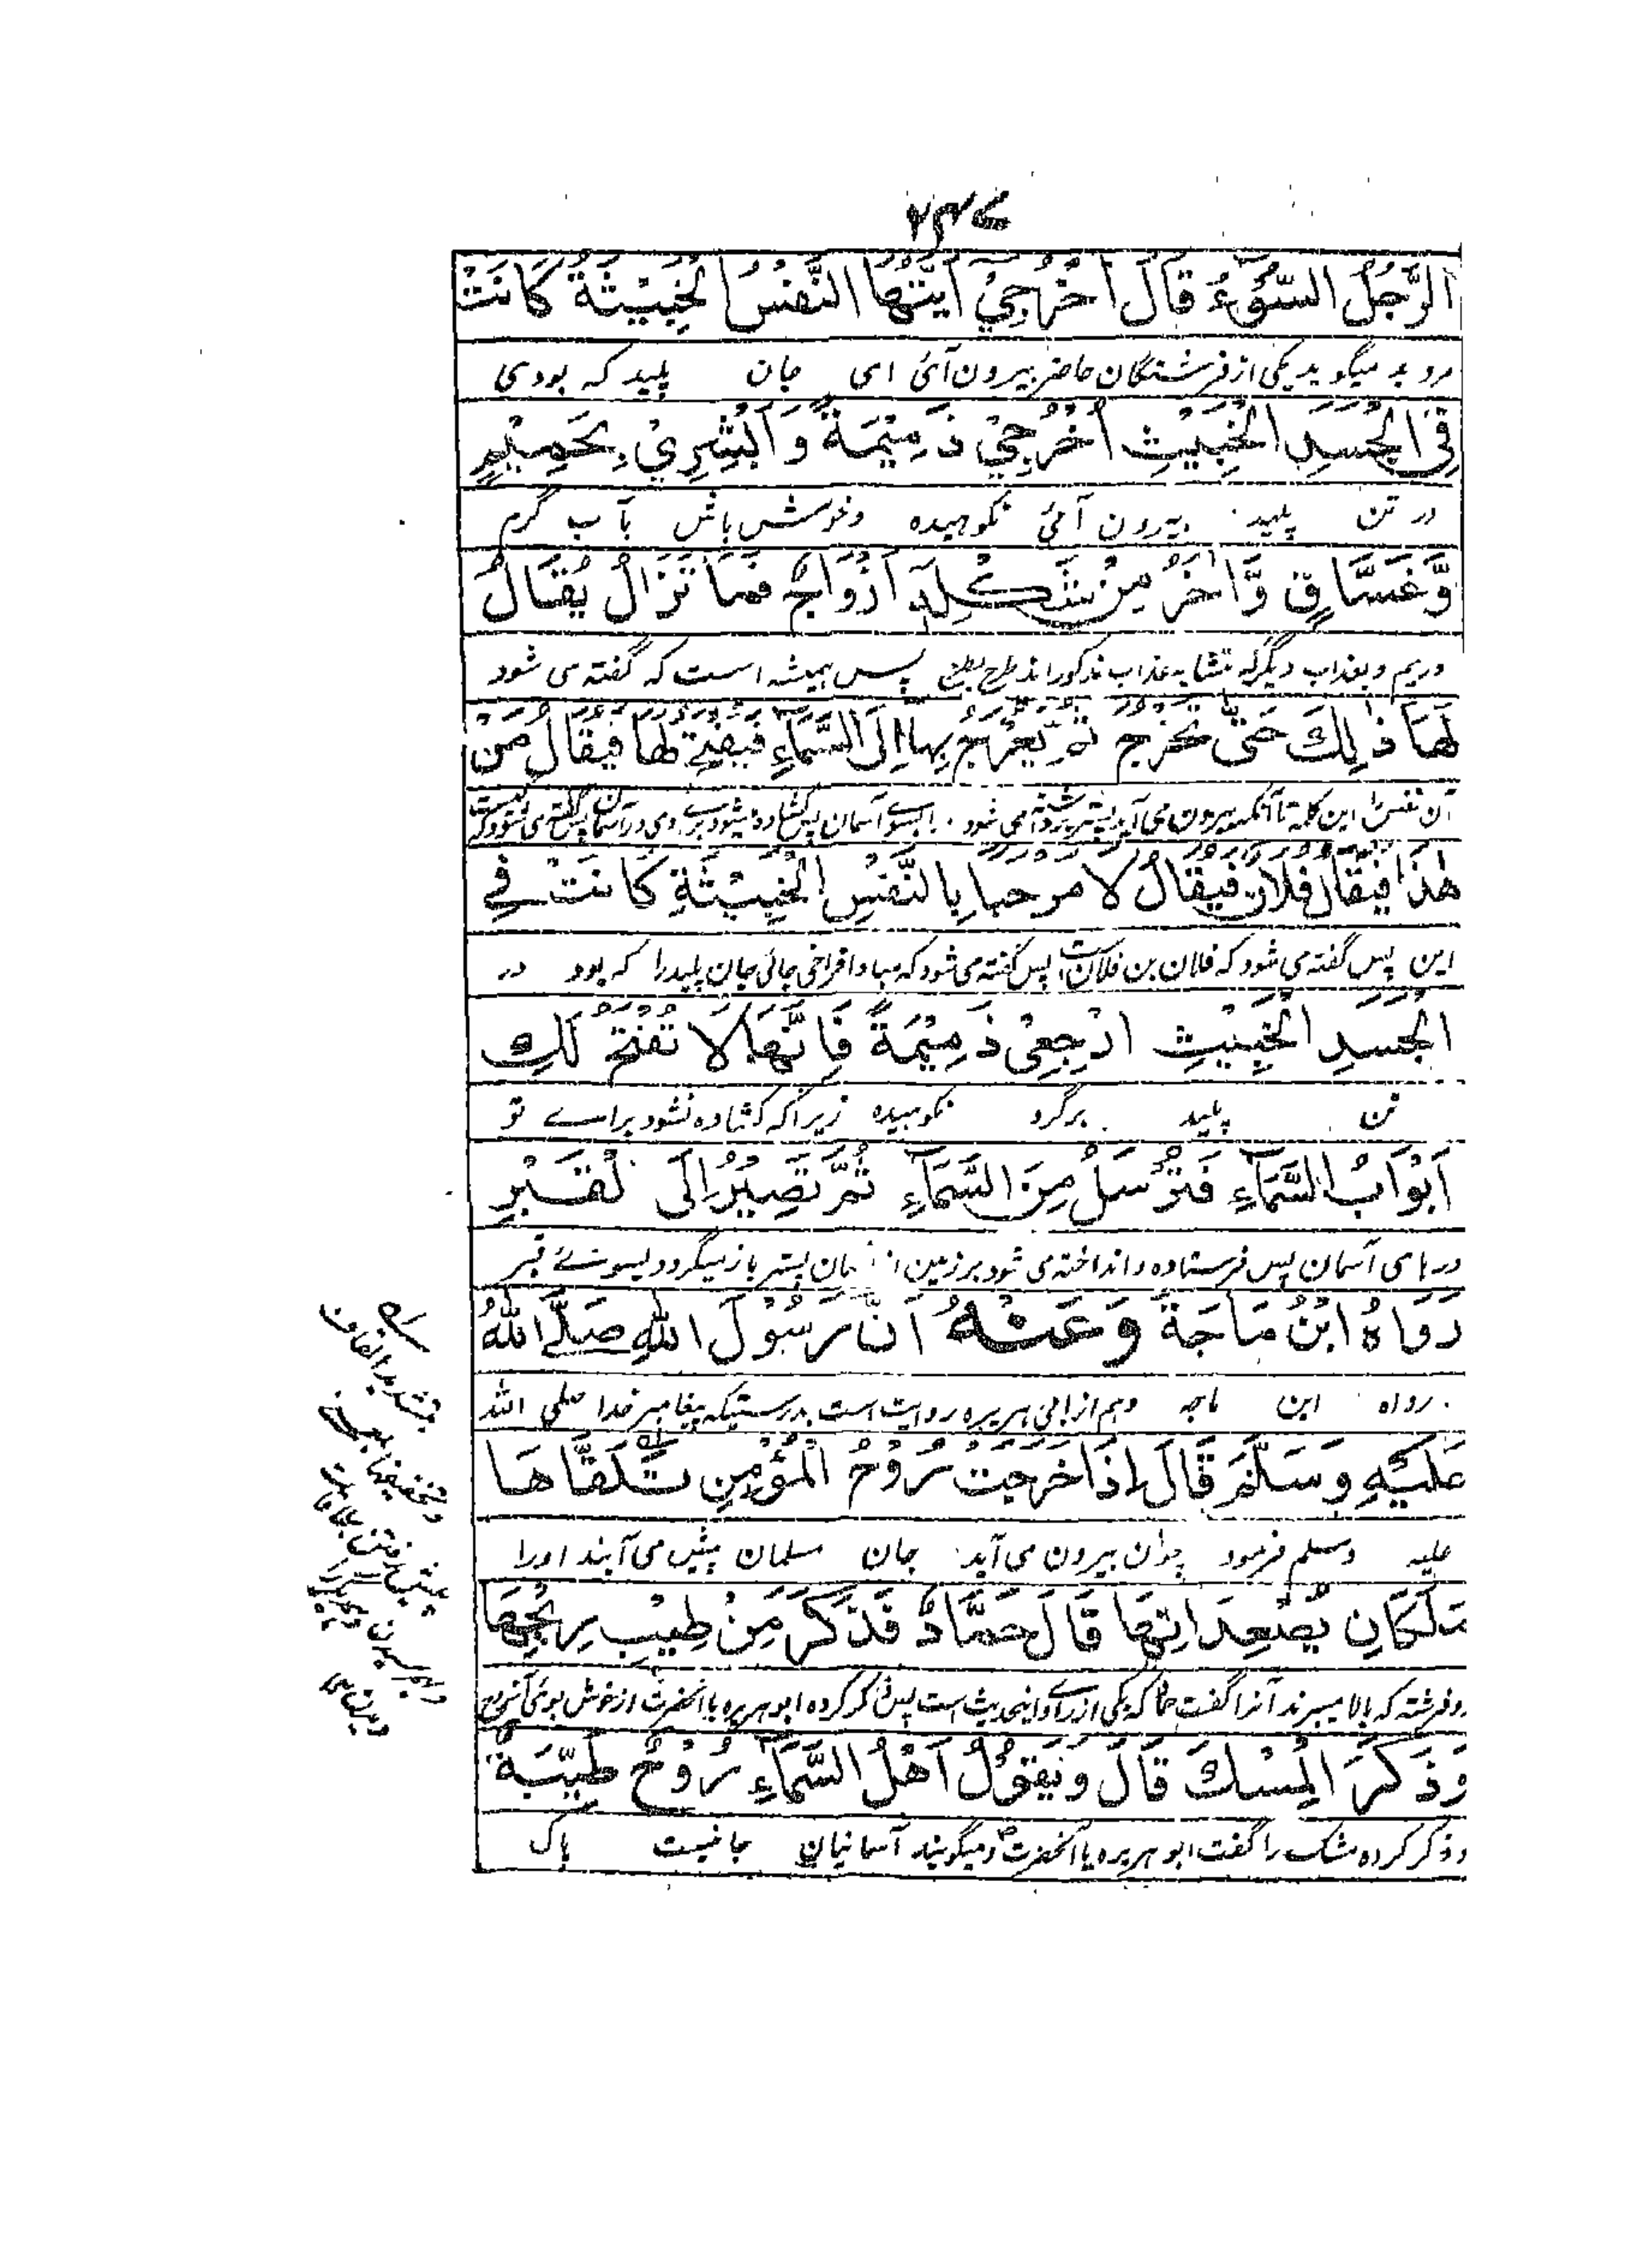 ۲۳۷
الرَّجُلُ السُّوْءُ قَالَ اُخْرُجِيْ اَيَّتُهَا النَّفْسُ الْخَبِيْثَةُ كَانَتْ
مرد بد میگوید یکی از فرشتگان حاضر بیرون آئی ای جان پلید که بودی
فِي الْجَسَدِ الْخَبِيْثِ اُخْرُجِيْ ذَمِيْمَةً وَاَبْشِرِيْ بِحَمِيْمٍ
در تن پلید بیرون آئی نکوهیده و خوش باش بآب گرم
وَّغَسَّاقٍ وَّاٰخَرُ مِنْ شَكْلِهٖ اَزْوَاجٌ فَمَا تَزَالُ يُقَالُ
وریم و بعذاب دیگر که متشابه عذاب مذکور اند پس همیشه است که گفته می شود
لَهَا ذٰلِكَ حَتّٰى تَخْرُجَ ثُمَّ يُعْرَجُ بِهَا اِلَى السَّمَاءِ فَيُفْتَحُ لَهَا فَيُقَالُ مَنْ
آن نفس را این کلمه تا آنکه بیرون می آید پستر می شود بسوے آسمان پس کشاده میشود برای وی در آسمان پس گفته می شود که
هٰذَا فَيُقَالُ فُلَانٌ فَيُقَالُ لَا مَرْحَبًا بِالنَّفْسِ الْخَبِيْثَةِ كَانَتْ فِي
این پس گفته می شود که فلان بن فلان است پس گفته می شود که مبادا فراخی جائی جان پلید را که بود در
الْجَسَدِ الْخَبِيْثِ ارْجِعِيْ ذَمِيْمَةً فَاِنَّهَا لَا تُفْتَحُ لَكِ
تن پلید برگرد نکوهیده زیرا که کشاده نشود براے تو
اَبْوَابُ السَّمَاءِ فَتُرْسَلُ مِنَ السَّمَاءِ ثُمَّ تَصِيْرُ اِلَى لْقَبْرِ
درهای آسمان پس فرستاده و انداخته می شود بر زمین از آسمان پستر باز میگردد بسوئے قبر
رَوَاهُ ابْنُ مَاجَةَ وَعَنْهُ اَنَّ رَسُوْلَ اللهِ صَلَّى اللهُ
رواه ابن ماجه وهم از ابی هریره روایت است بدرستیکه پیغامبر خدا صلی الله
عَلَيْهِ وَسَلَّمَ قَالَ اِذَا خَرَجَتْ رُوْحُ الْمُؤْمِنِ تَلَقَّاهَا
علیه وسلم فرمود چون بیرون می آید جان مسلمان پیش می آیند اورا
مَلَكَانِ يُصْعِدَانِهَا قَالَ حَمَّادٌ فَذَكَرَ مِنْ طِيْبِ رِيْحِهَا
دو فرشته که بالا میبرند آنرا گفت حماد که یکی از راوے این حدیث است پس ذکر کرده ابو هریره یا آنحضرت از خوش بوئی آن روح
وَذَكَرَ الْمِسْكَ قَالَ وَيَقُوْلُ اَهْلُ السَّمَاءِ رُوْحٌ طَيِّبَةٌ
وذکر کرده مشک را گفت ابو هریره یا آنحضرت و میگویند آسمانیان جانیست پاک
بتشدید القاف